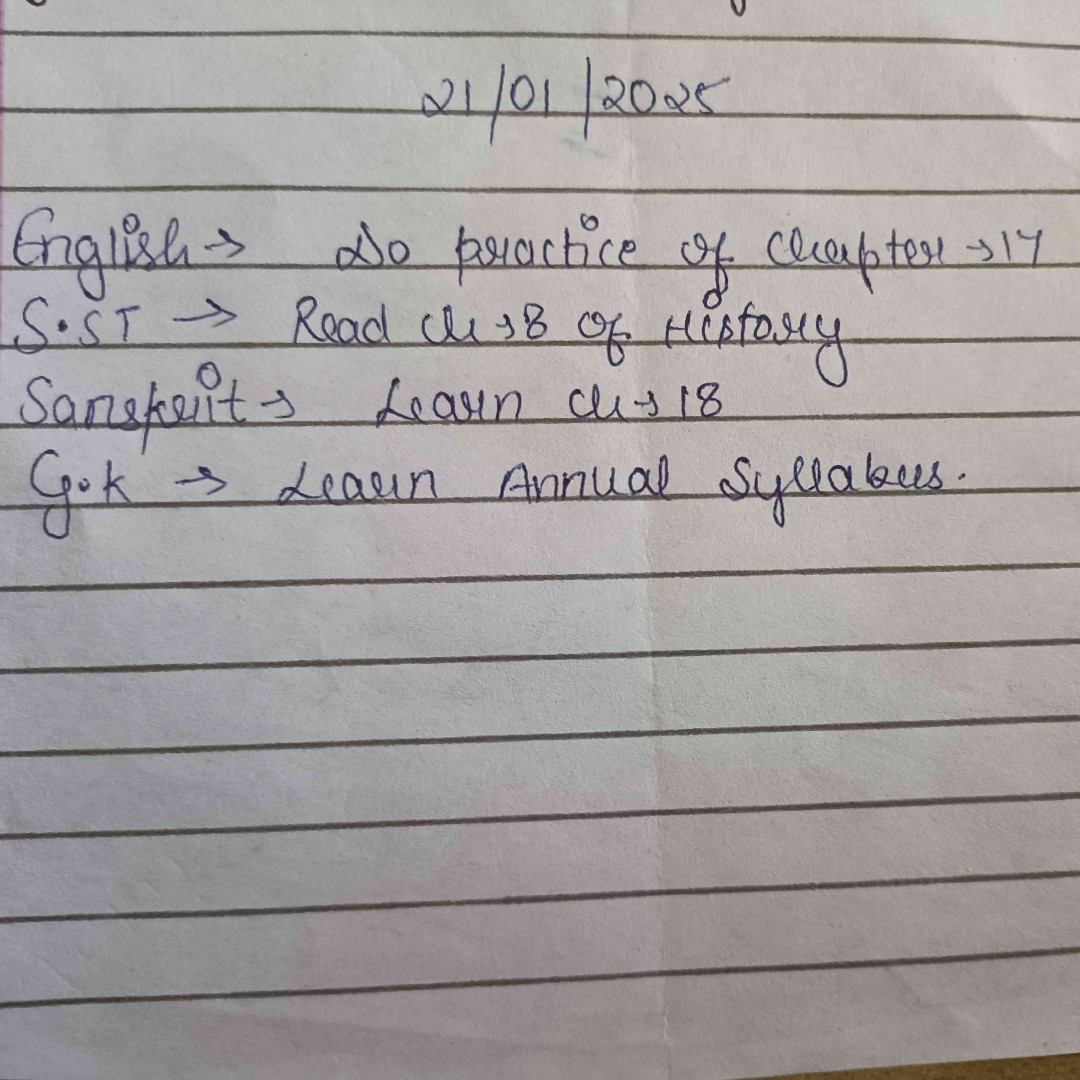 21/01/2025
English → Do practice of Chapter → 17
S.ST → Read Ch → 8 of History
Sanskrit → Learn Ch → 18
G.k → Learn Annual Syllabus.